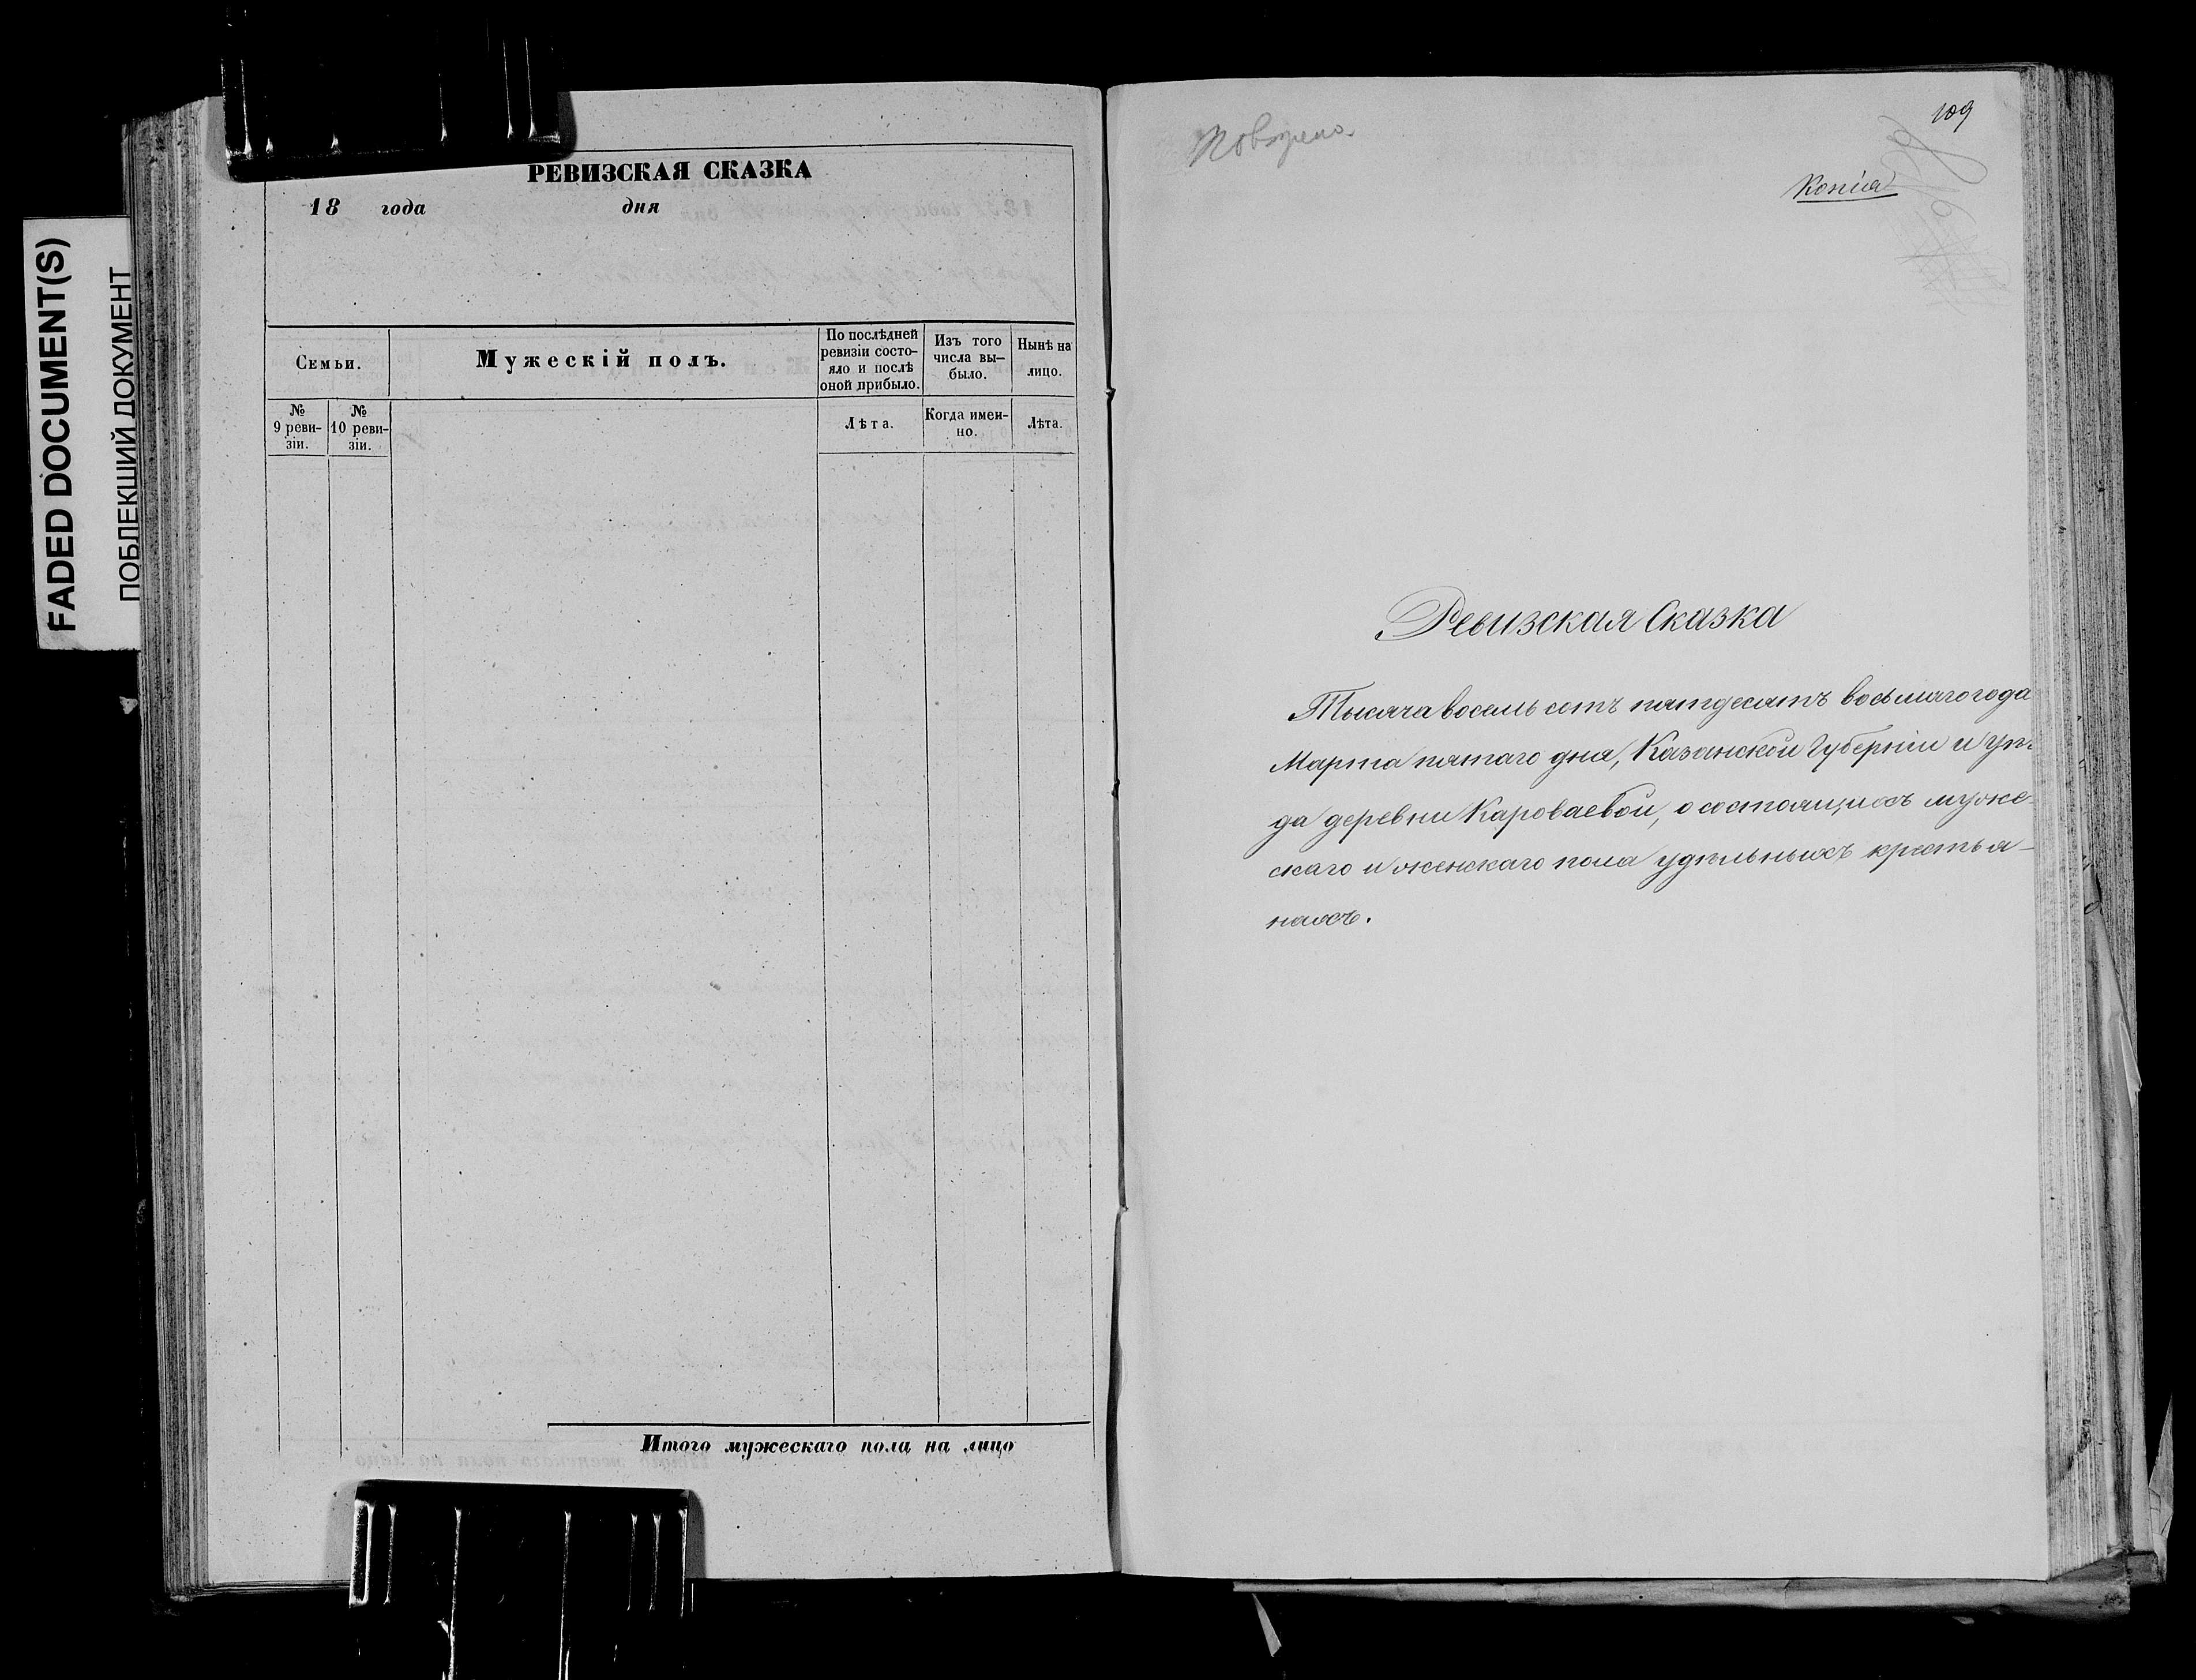 FADED DOCUMENT(S)
ПОБЛЕКШИЙ ДОКУМЕНТ
РЕВИЗСКАЯ СКАЗКА
18 года дня
Семьи.
Мужескій полъ.
По послѣдней
ревизіи состо-
яло и послѣ
оной прибыло.
Изъ того
числа вы-
было.
Нынѣ на
лицо.
№
9 реви-
зіи.
№
10 реви-
зіи.
Лѣта.
Когда имен-
но.
Лѣта.
Итого мужескаго пола на лицо
109
Копія
Ревизская Сказка
Тысяча восемь сотъ пятдесятъ восьмаго года
Марта пятаго дня, Казанской Губерніи и уѣз
да деревни Кароваевой, о состоящихъ муже-
скаго и женскаго пола удѣльныхъ крестья-
нахъ.